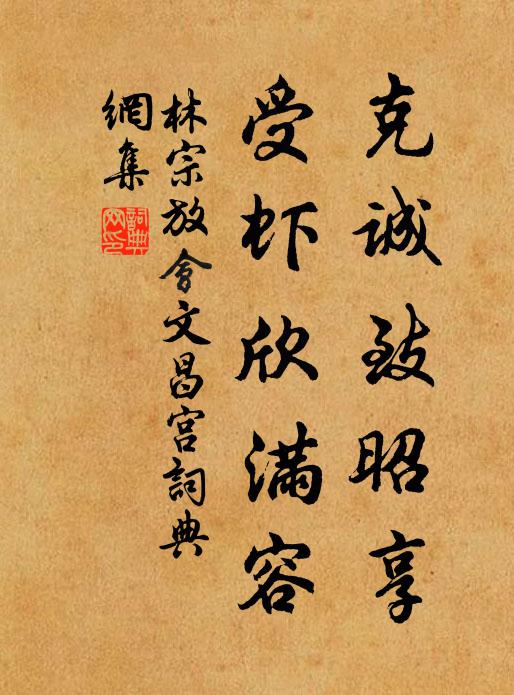 克诚致昭享
受虾欣满容
林宗放會文昌宫詞典
網集
詞典網印